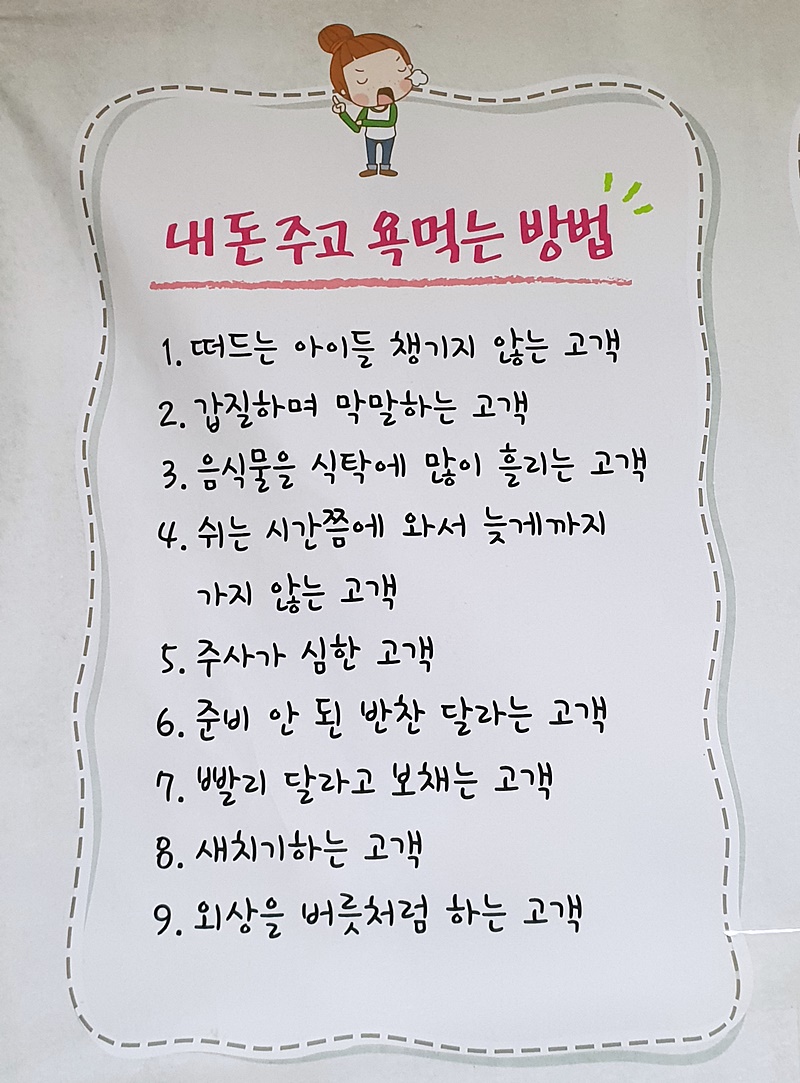 내 돈 주고 욕먹는 방법
1. 떠드는 아이들 챙기지 않는 고객
2. 갑질하며 막말하는 고객
3. 음식물을 식탁에 많이 흘리는 고객
4. 쉬는 시간쯤에 와서 늦게까지
가지 않는 고객
5. 주사가 심한 고객
6. 준비 안 된 반찬 달라는 고객
7. 빨리 달라고 보채는 고객
8. 새치기하는 고객
9. 외상을 버릇처럼 하는 고객